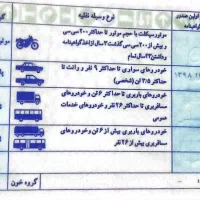 نوع وسیله نقلیه
اولین صدور
گواهینامه
موتورسیکلت با حجم موتور تا حداکثر ۲۰۰ سی‌سی
و بیش از ۲۰۰ سی‌سی گذشت ۳ سال از اخذ گواهینامه
و داشتن ۲۳ سال تمام
خودروهای سواری تا حداکثر ۹ نفر و وانت تا
حداکثر ۳/۵ تن (شخصی)
خودروهای باربری تا حداکثر ۶ تن و خودروهای
مسافربری تا حداکثر ۲۶ نفر و خودروهای خدمات
عمومی
خودروهای باربری بیش از ۶ تن و خودروهای
مسافربری بیش از ۲۶ نفر
گروه خون